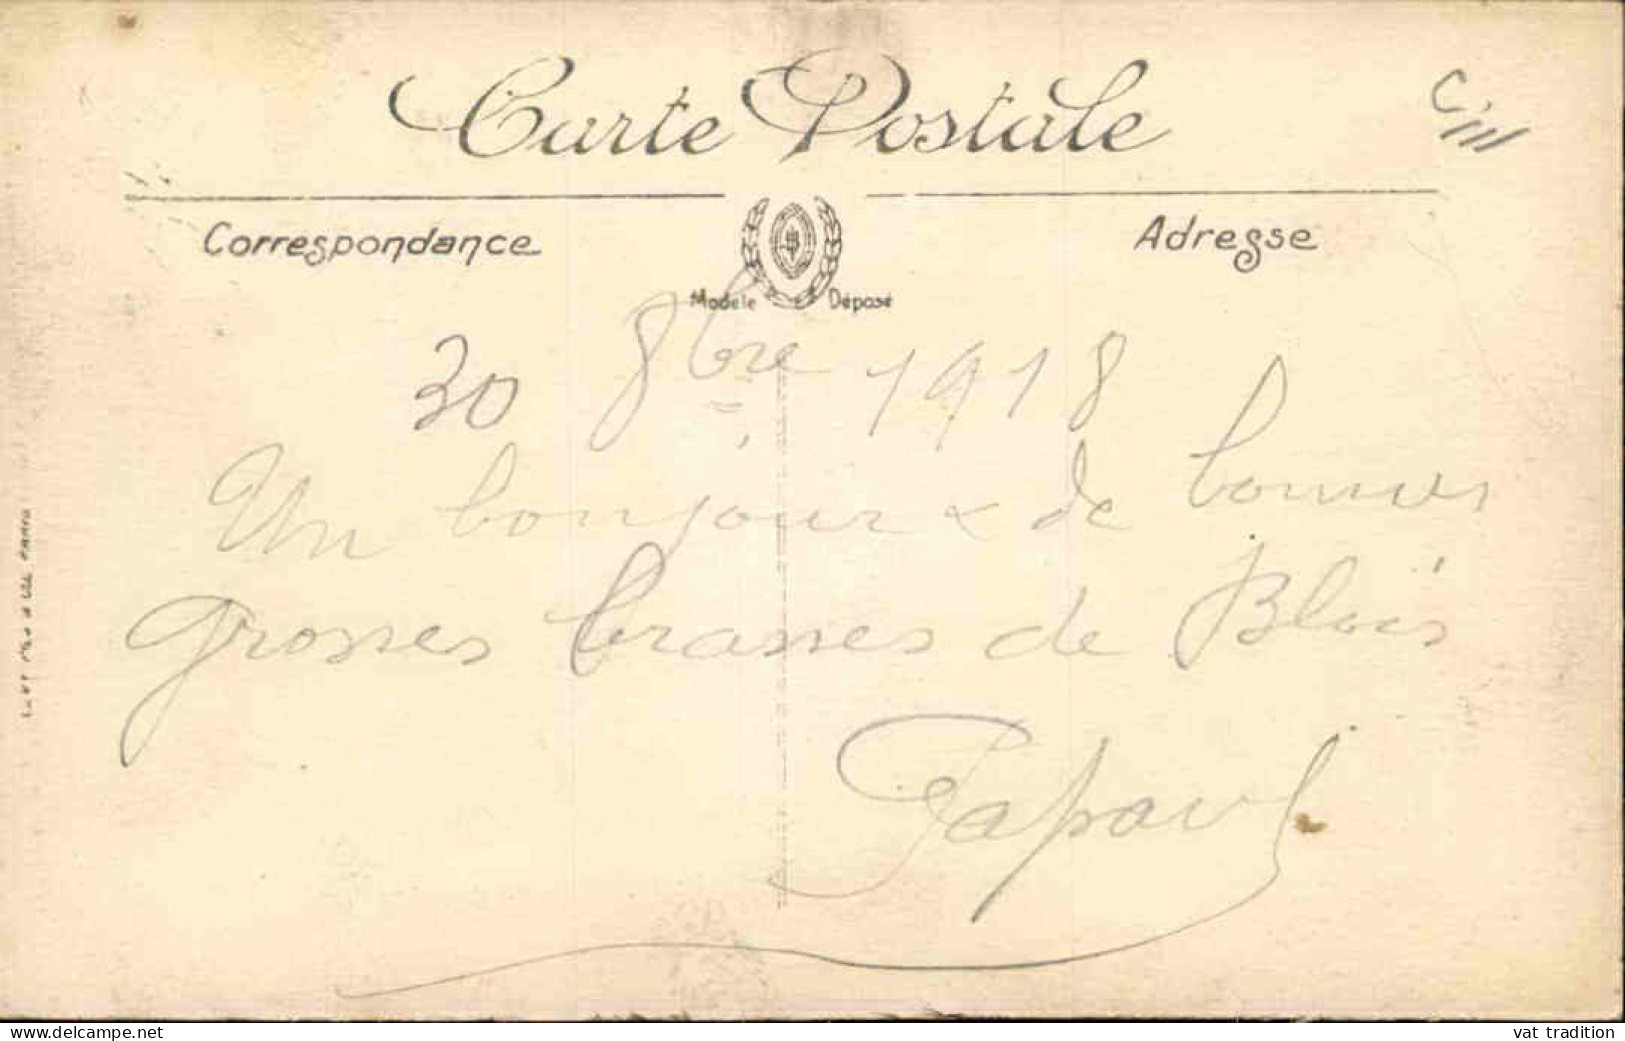 Carte Postale
Correspondance
Adresse
Modèle Déposé
30 8bre 1918
Un bonjour & de bonnes
grosses brasses de Blois
Papaul
vat tradition
https://www.delcampe.net